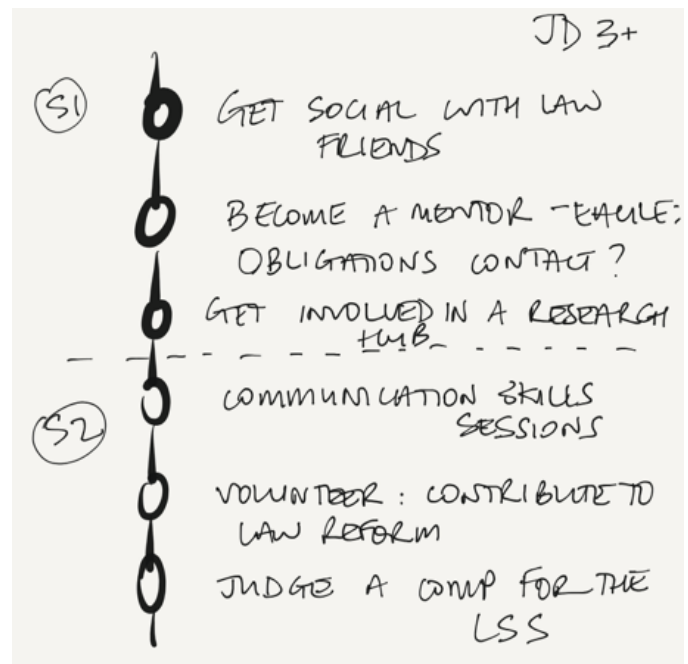 JD 3+
S1
GET SOCIAL WITH LAW
FRIENDS
BECOME A MENTOR -
OBLIGATIONS CONTACT?
GET INVOLVED IN A RESEARCH
HUB
S2
COMMUNICATION SKILLS
SESSIONS
VOLUNTEER: CONTRIBUTE TO
LAW REFORM
JUDGE A COMP FOR THE
LSS